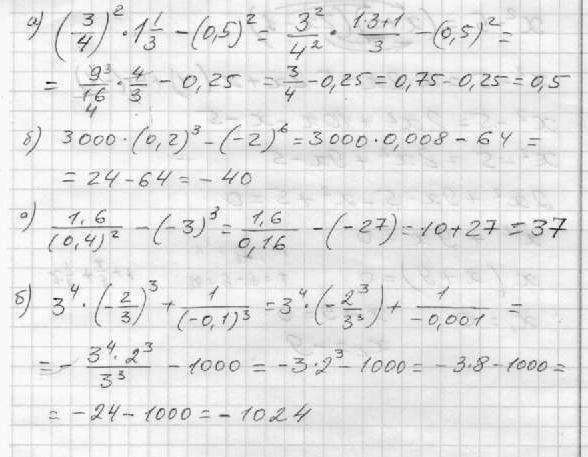 а) (3/4)² · 1 1/3 − (0,5)² = 3²/4² · (1·3+1)/3 − (0,5)² =
= 9³/16₄ · 4/3 − 0,25 = 3/4 − 0,25 = 0,75 − 0,25 = 0,5
б) 3000 · (0,2)³ − (−2)⁶ = 3000 · 0,008 − 64 =
= 24 − 64 = − 40
а) 1,6/(0,4)² − (−3)³ = 1,6/0,16 − (−27) = 10 + 27 = 37
б) 3⁴ · (−2/3)³ + 1/(−0,1)³ = 3⁴ · (−2³/3³) + 1/−0,001 =
= − 3⁴ · 2³/3³ − 1000 = −3 · 2³ − 1000 = −3·8 − 1000 =
= −24 − 1000 = − 1024